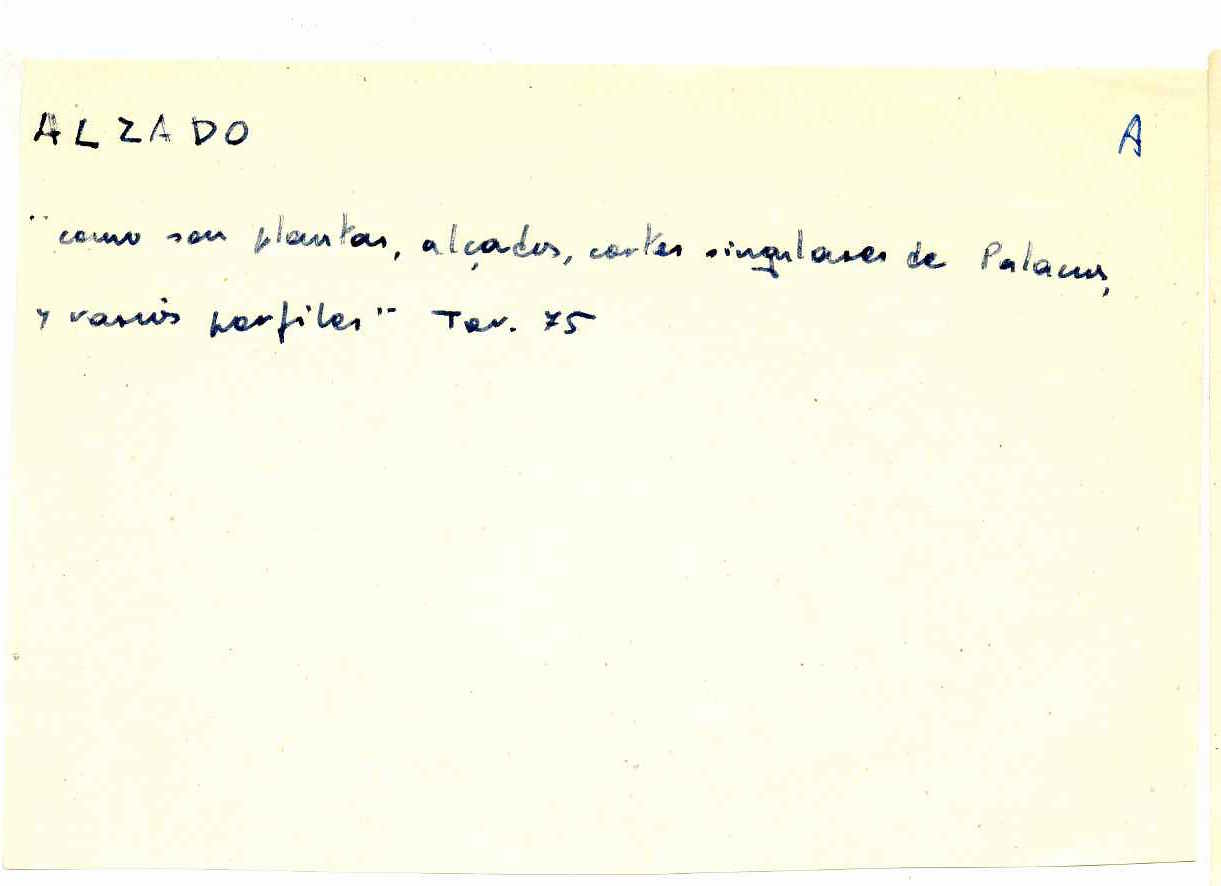 ALZADO A
"como son plantas, alçados, cortes singulares de Palacios,
y varios perfiles" Tor. 75